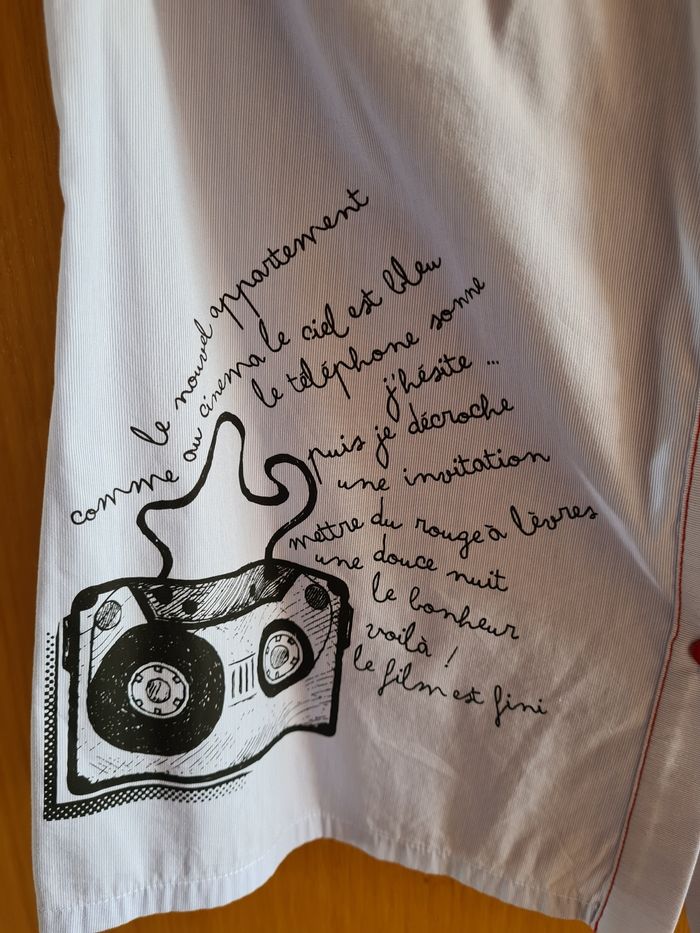 le nouvel appartement
comme au cinema le ciel est bleu
le téléphone sonne
j'hésite ...
puis je décroche
une invitation
mettre du rouge à lèvres
une douce nuit
le bonheur
voilà !
le film est fini